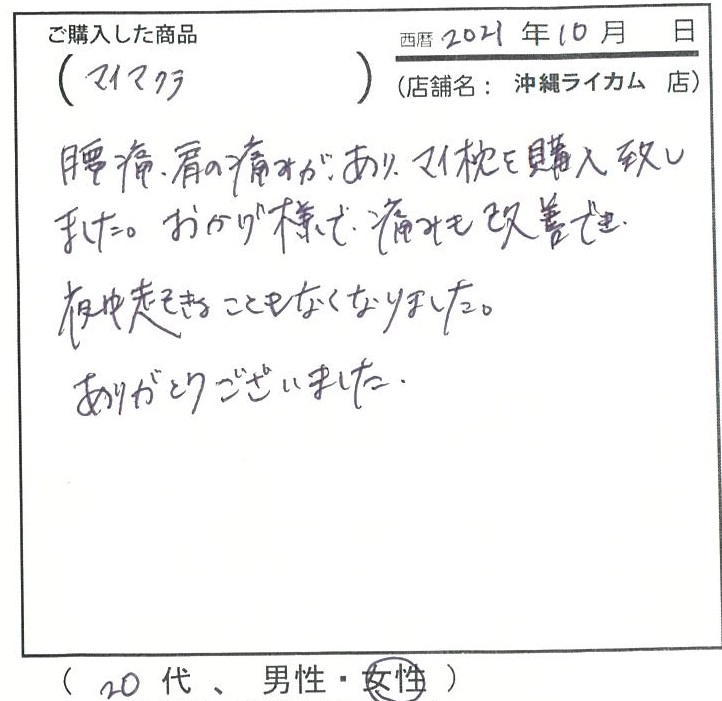 ご購入した商品
西暦 2021 年 10 月 日
( マイマクラ )
(店舗名： 沖縄ライカム 店)
腰痛、肩の痛みが、あり、マイ枕を購入致し
ました。おかげ様で、痛みも改善でき、
夜中起きることもなくなりました。
ありがとうございました.
( 20 代 、 男性・女性 )